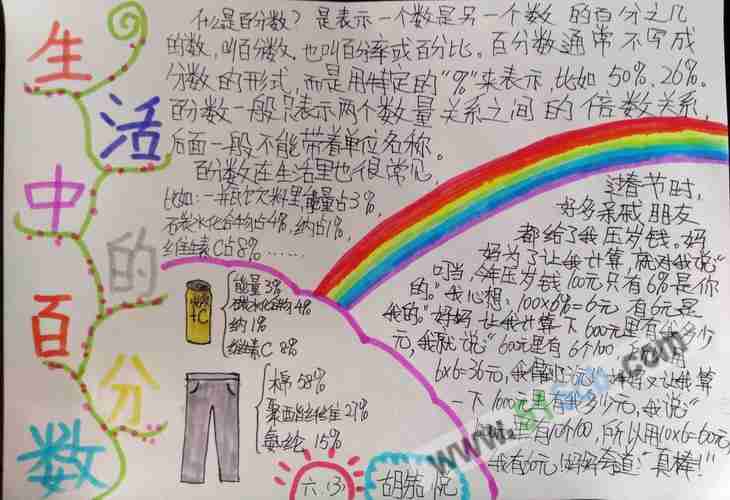 生活中的百分数
什么是百分数？是表示一个数是另一个数 的百分之几
的数，叫百分数。也叫百分率或百分比。百分数通常不写成
分数的形式，而是用特定的"%"来表示，比如50%、26%。
百分数一般只表示两个数量关系之间的倍数关系，
后面一般不能带着单位名称。
百分数在生活里也很常见，
比如：一瓶饮料里能量占3%，
碳水化合物占4%，纳占1%，
维生素C占8%……
能量3%
碳水化合物4%
纳1%
维生素C 8%
+C
棉 58%
聚酯纤维27%
氨纶 15%
过春节时，
好多亲戚朋友
都给了我压岁钱。妈
妈为了让我计算，就对我说"
叮当，今年压岁钱100元只有6%是你
的。"我心想：100x6%=6元 有6元是
我的。"妈妈让我计算一下600元里有我多少
元，我就说"600元里有6个100，
6x6=36元，我有36元。" 又让我算
一下1000元里有我多少元，我说"
里有10个100，所以用10x6=60元，
我有60元。"妈妈夸道："真棒！"
六.(3)
胡
www. .com